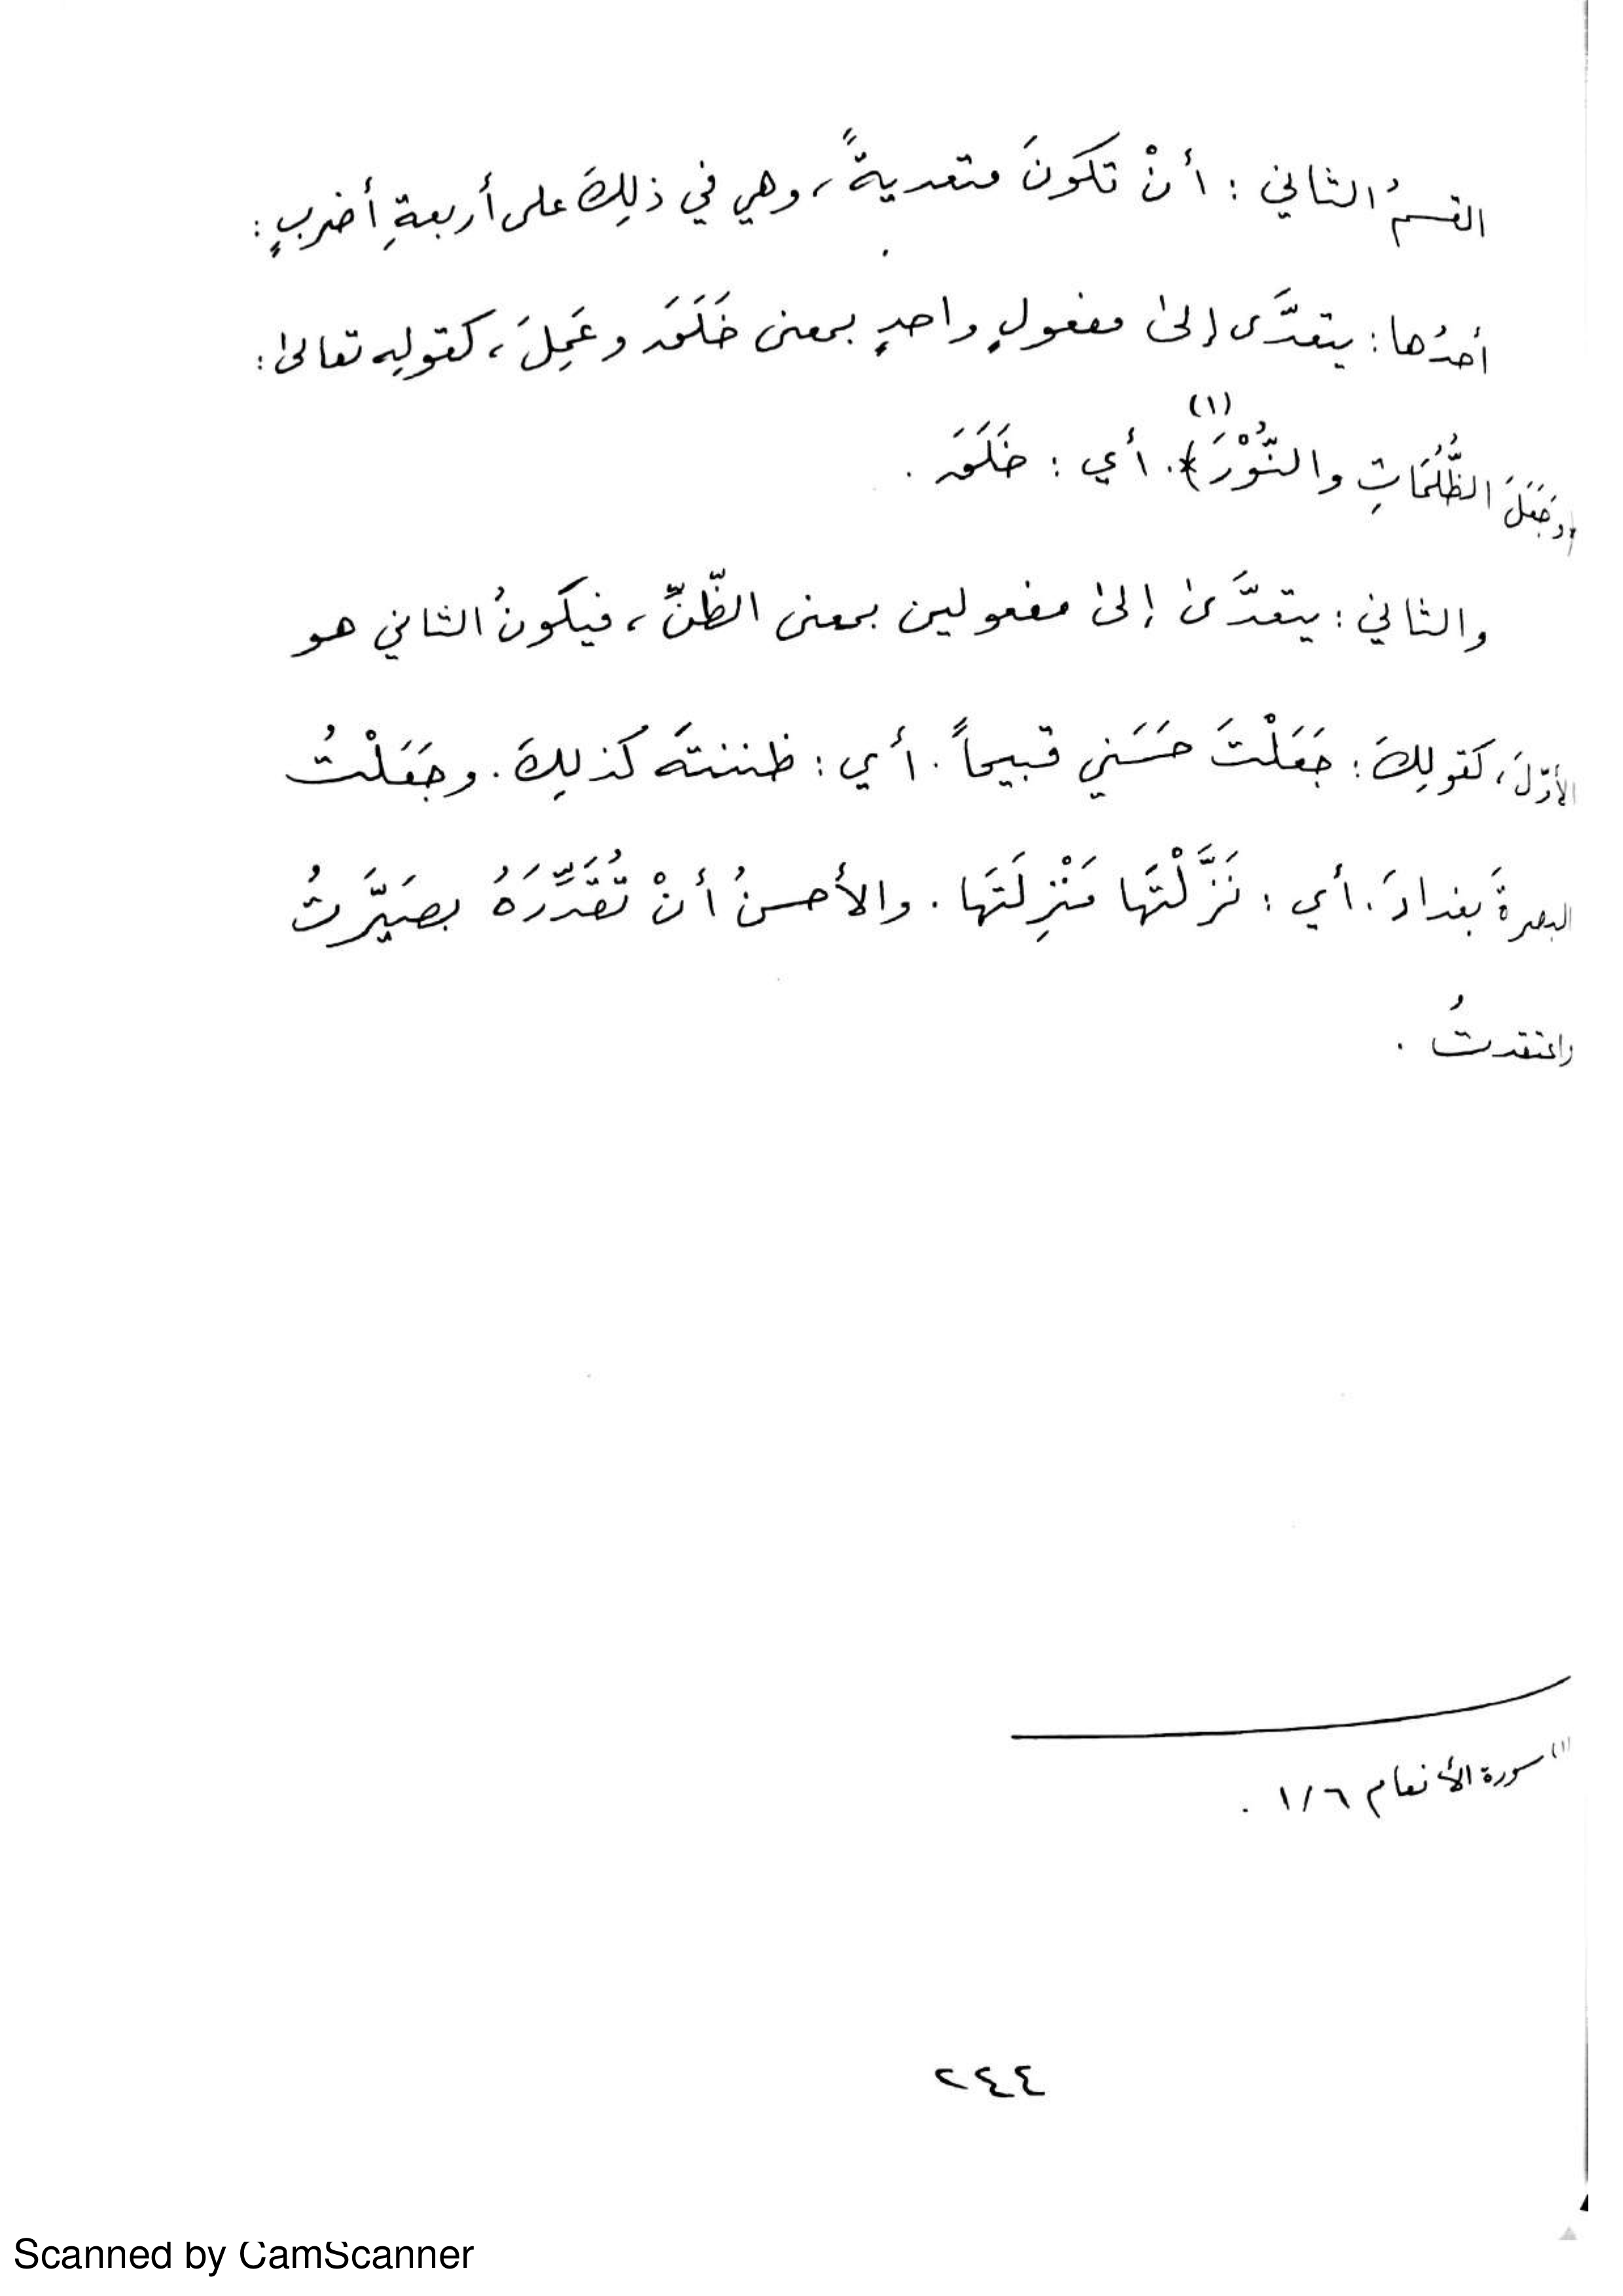 القسمُ الثاني : أنْ تكونَ متعديةً ، وهي في ذلِكَ على أربعةِ أضربٍ :
أحدُها : يتعدَّى إلىٰ مفعولٍ واحدٍ بمعنى خَلَقَ وعَمِلَ ، كقولِه تعالىٰ :
﴿وَجَعَلَ الظُّلُمَاتِ والنُّوْرَ﴾(١). أي : خَلَقَ .
والثاني : يتعدَّىٰ إلىٰ مفعولين بمعنى الظّنِّ ، فيكونُ الثاني هو
الأوّلَ ، كقولِكَ : جَعَلْتَ حَسَني قبيحاً . أي : ظننتَه كذلِكَ . وجَعَلْتُ
البصرةَ بغدادَ . أي : نَزَّلْتَها مَنْزِلَتَها . والأحسنُ أنْ تُقَدِّرَهُ بصَيَّرتُ
واعتقدتُ .
(١) سورة الأنعام ١/٦ .
٢٤٤
Scanned by CamScanner